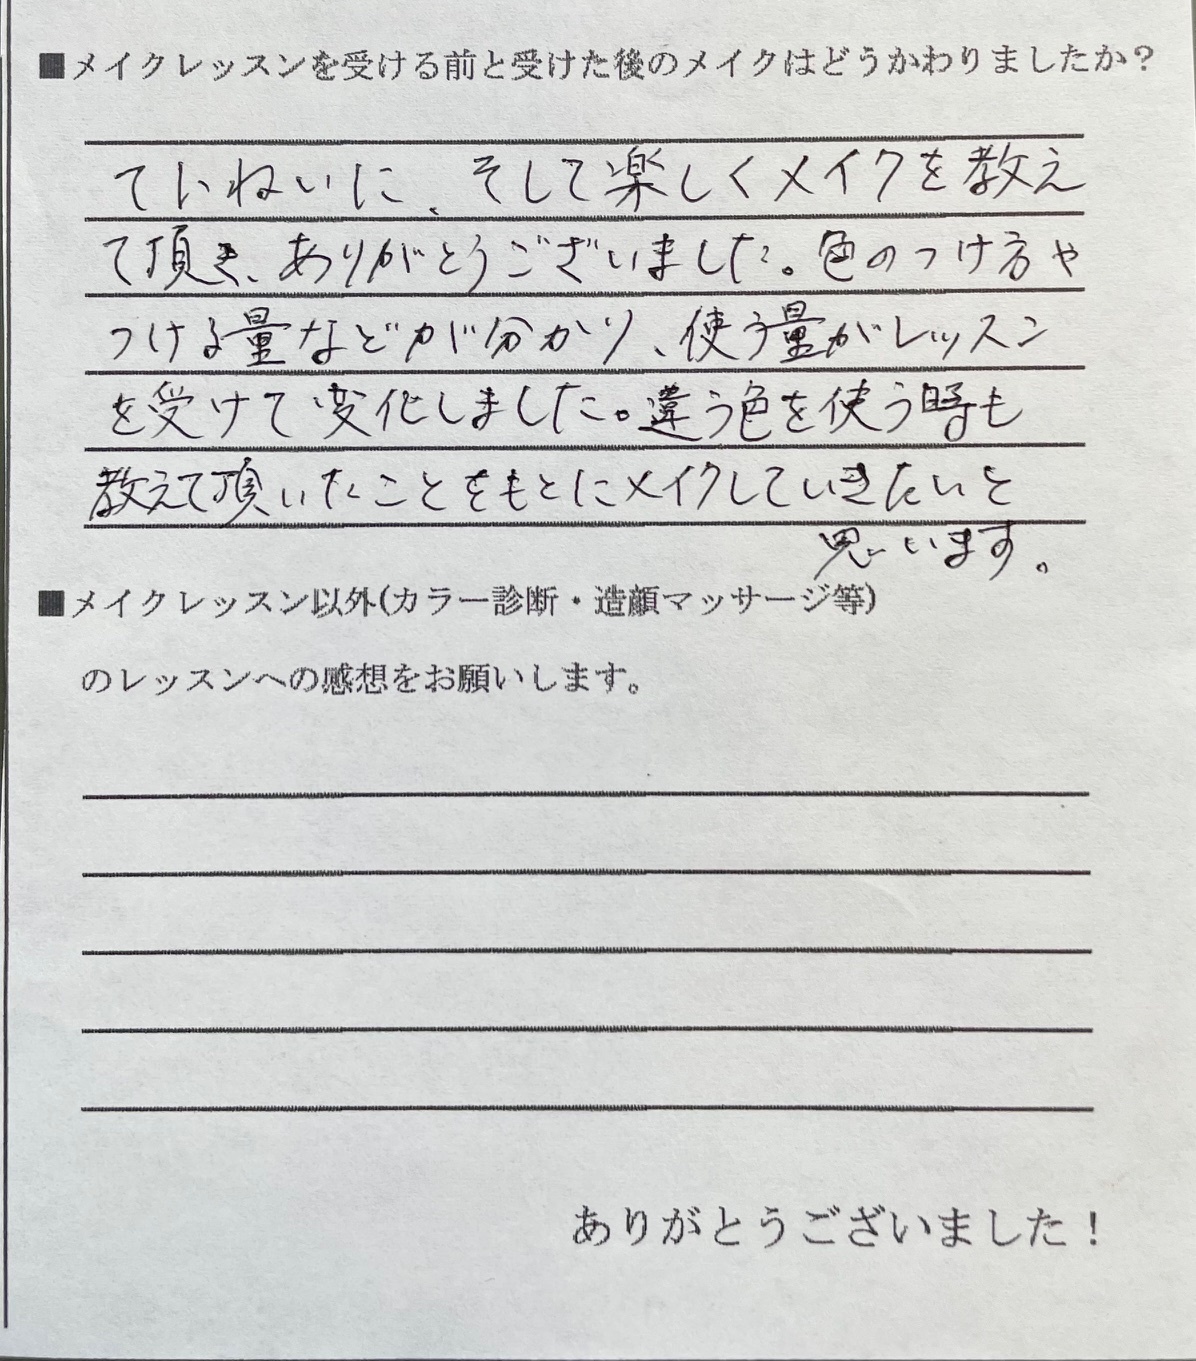 ■メイクレッスンを受ける前と受けた後のメイクはどうかわりましたか？
ていねいに、そして楽しくメイクを教え
て頂き、ありがとうございました。色のつけ方や
つける量などが分かり、使う量がレッスン
を受けて変化しました。違う色を使う時も
教えて頂いたことをもとにメイクしていきたいと
思います。
■メイクレッスン以外(カラー診断・造顔マッサージ等)
のレッスンへの感想をお願いします。
ありがとうございました！